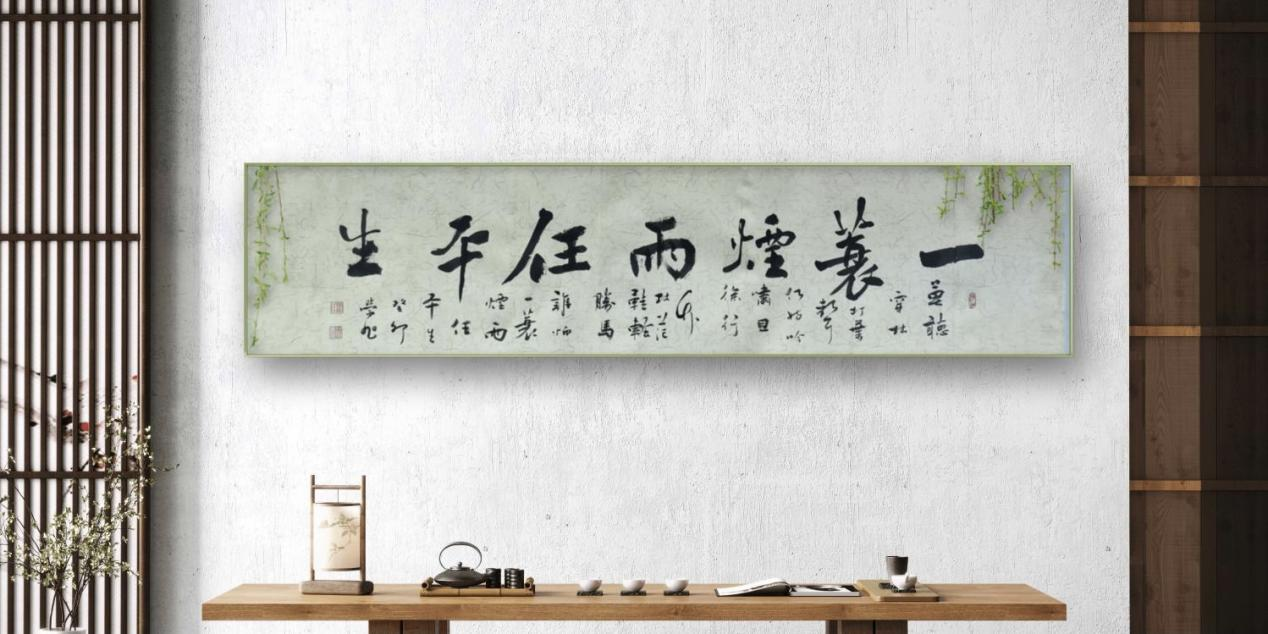 一蓑煙雨任平生
莫聽
穿林
打葉
聲
何妨吟
嘯且
徐行
竹
杖芒
鞋輕
勝馬
誰怕
一蓑
煙雨
任
平生
癸卯